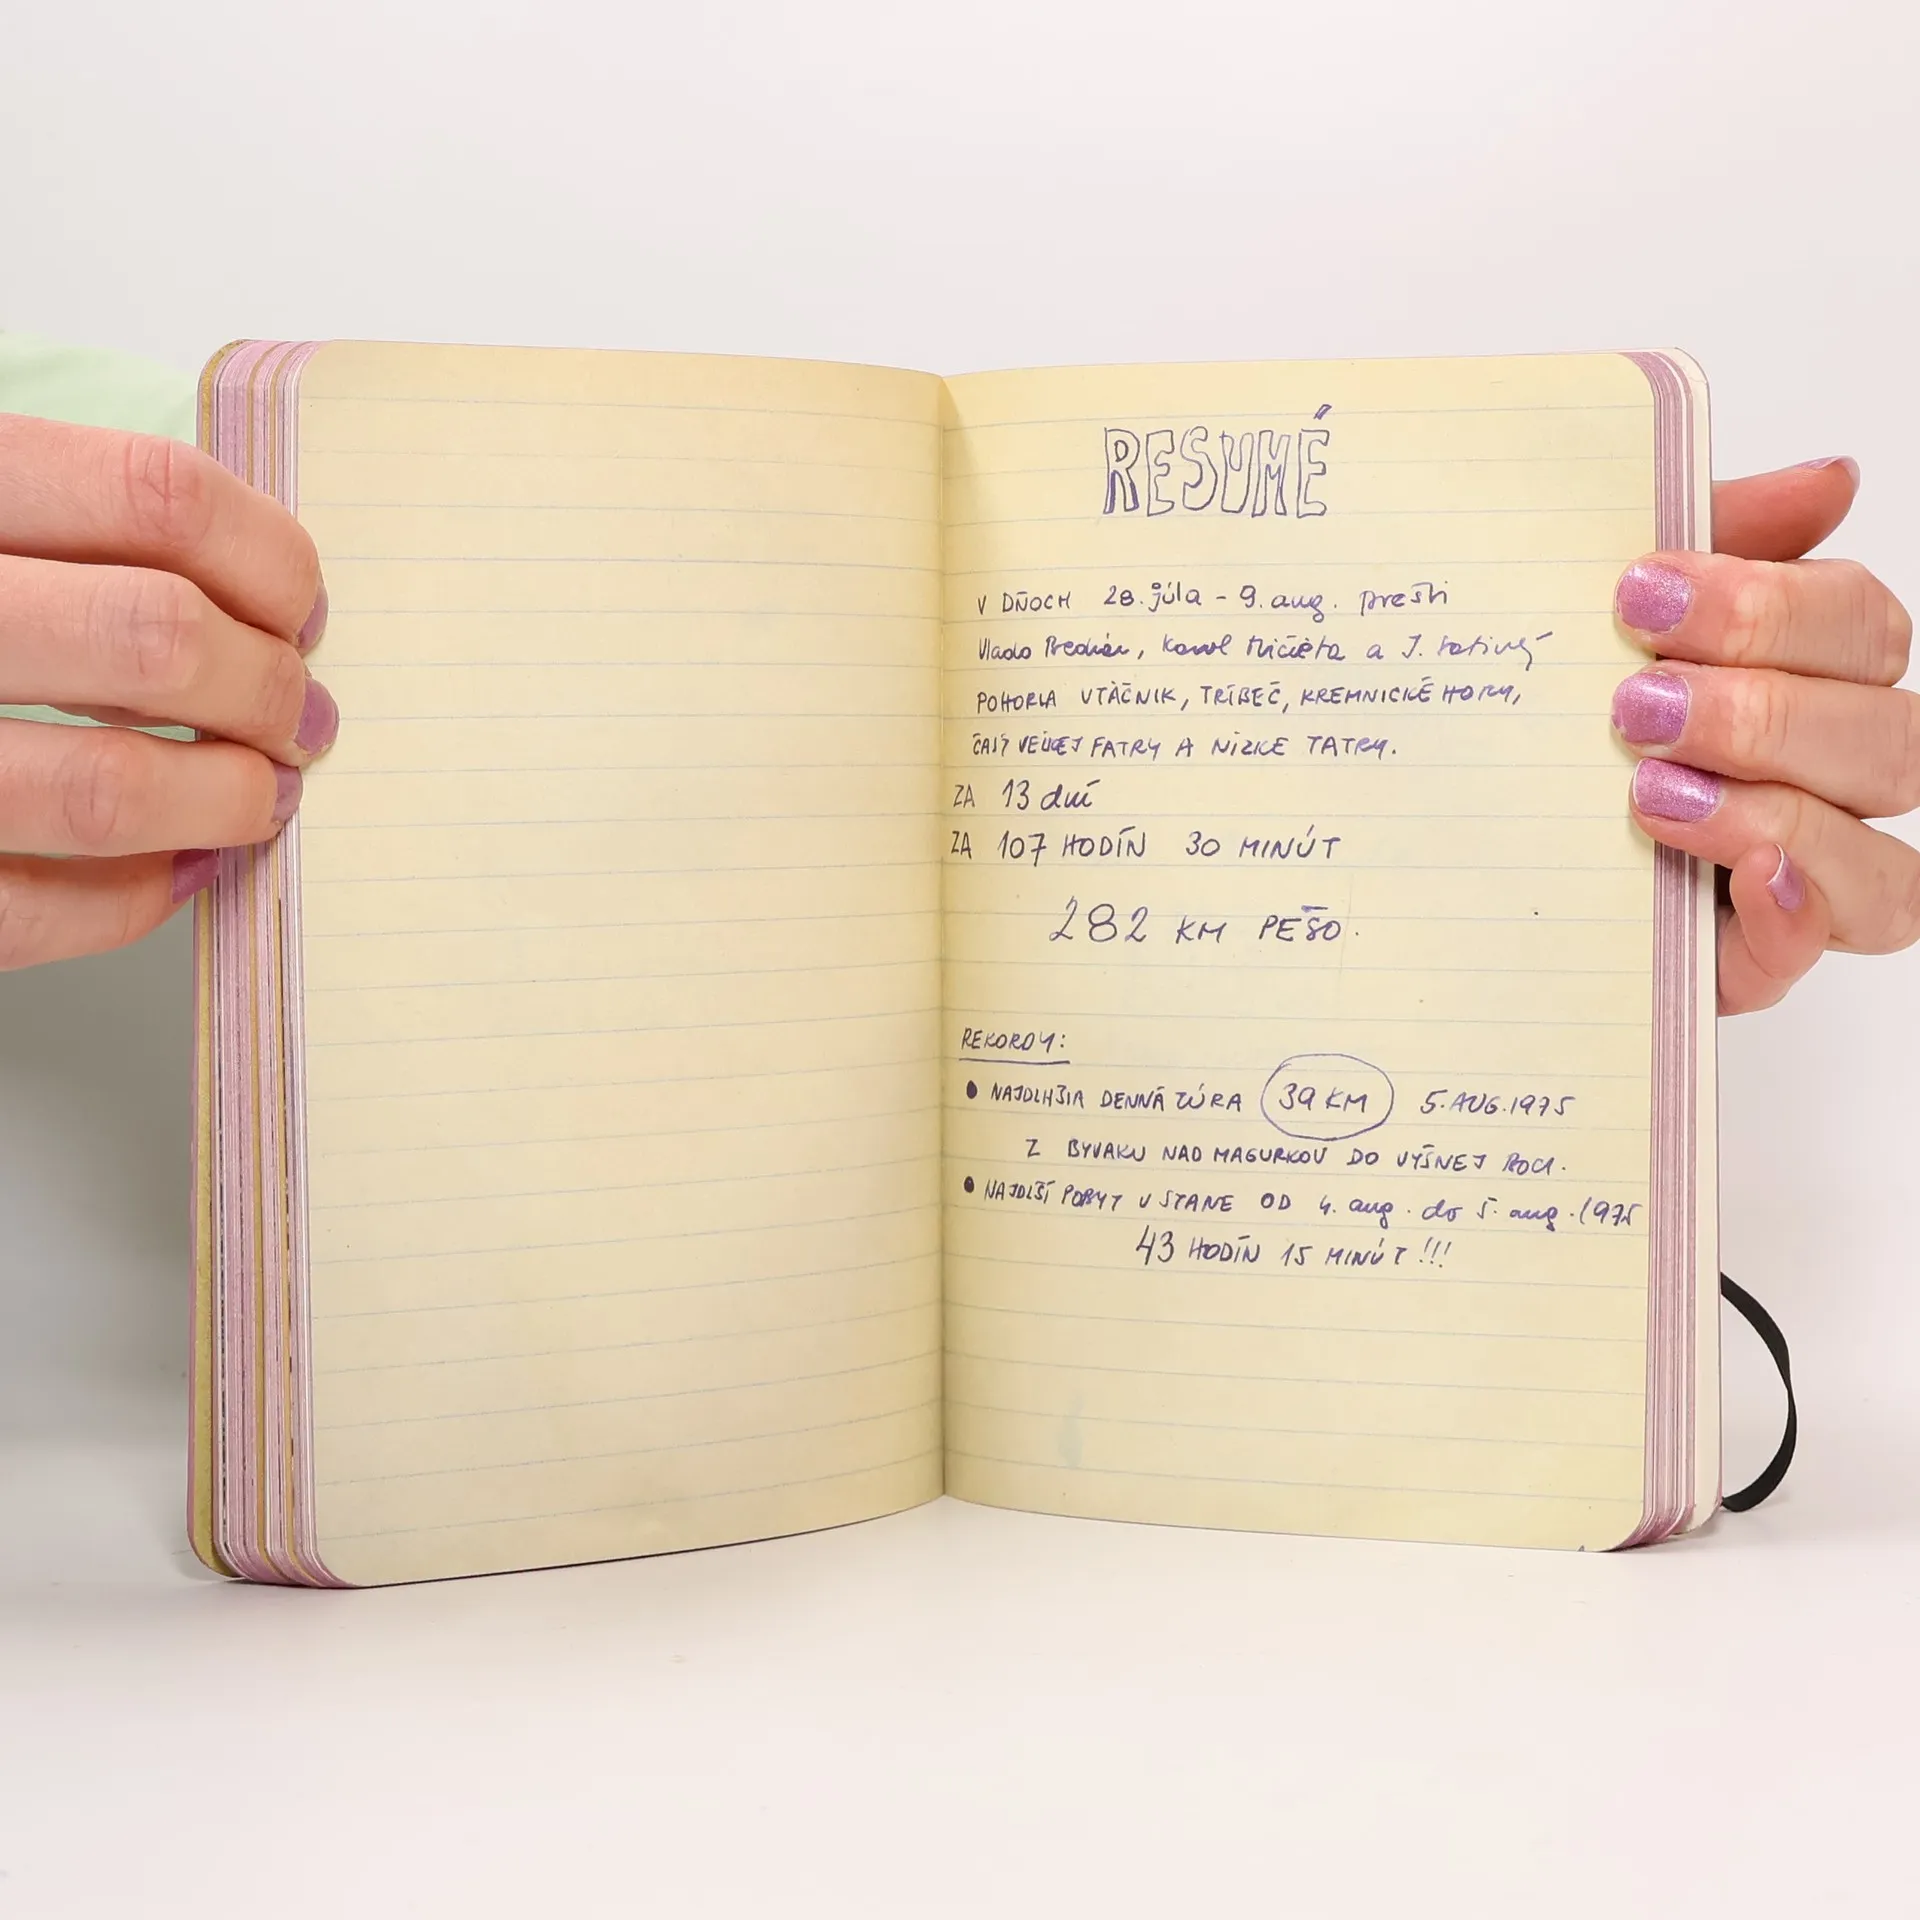 RESUMÉ
V DŇOCH 28. júla - 9. aug. prešli
Vlado Predmer, Karol Mičieta a J.
POHORIA VTÁČNIK, TRÍBEČ, KREMNICKÉ HORY,
ČASŤ VEĽKEJ FATRY A NÍZKE TATRY.
ZA 13 dní
ZA 107 HODÍN 30 MINÚT
282 KM PEŠO.
REKORDY:
• NAJDLHŠIA DENNÁ TÚRA 39 KM 5. AUG. 1975
Z BYVAKU NAD MAGURKOU DO VYŠNEJ BOCI.
• NAJDLŠÍ POBYT V STANE OD 4. aug. do 5. aug. 1975
43 HODÍN 15 MINÚT !!!